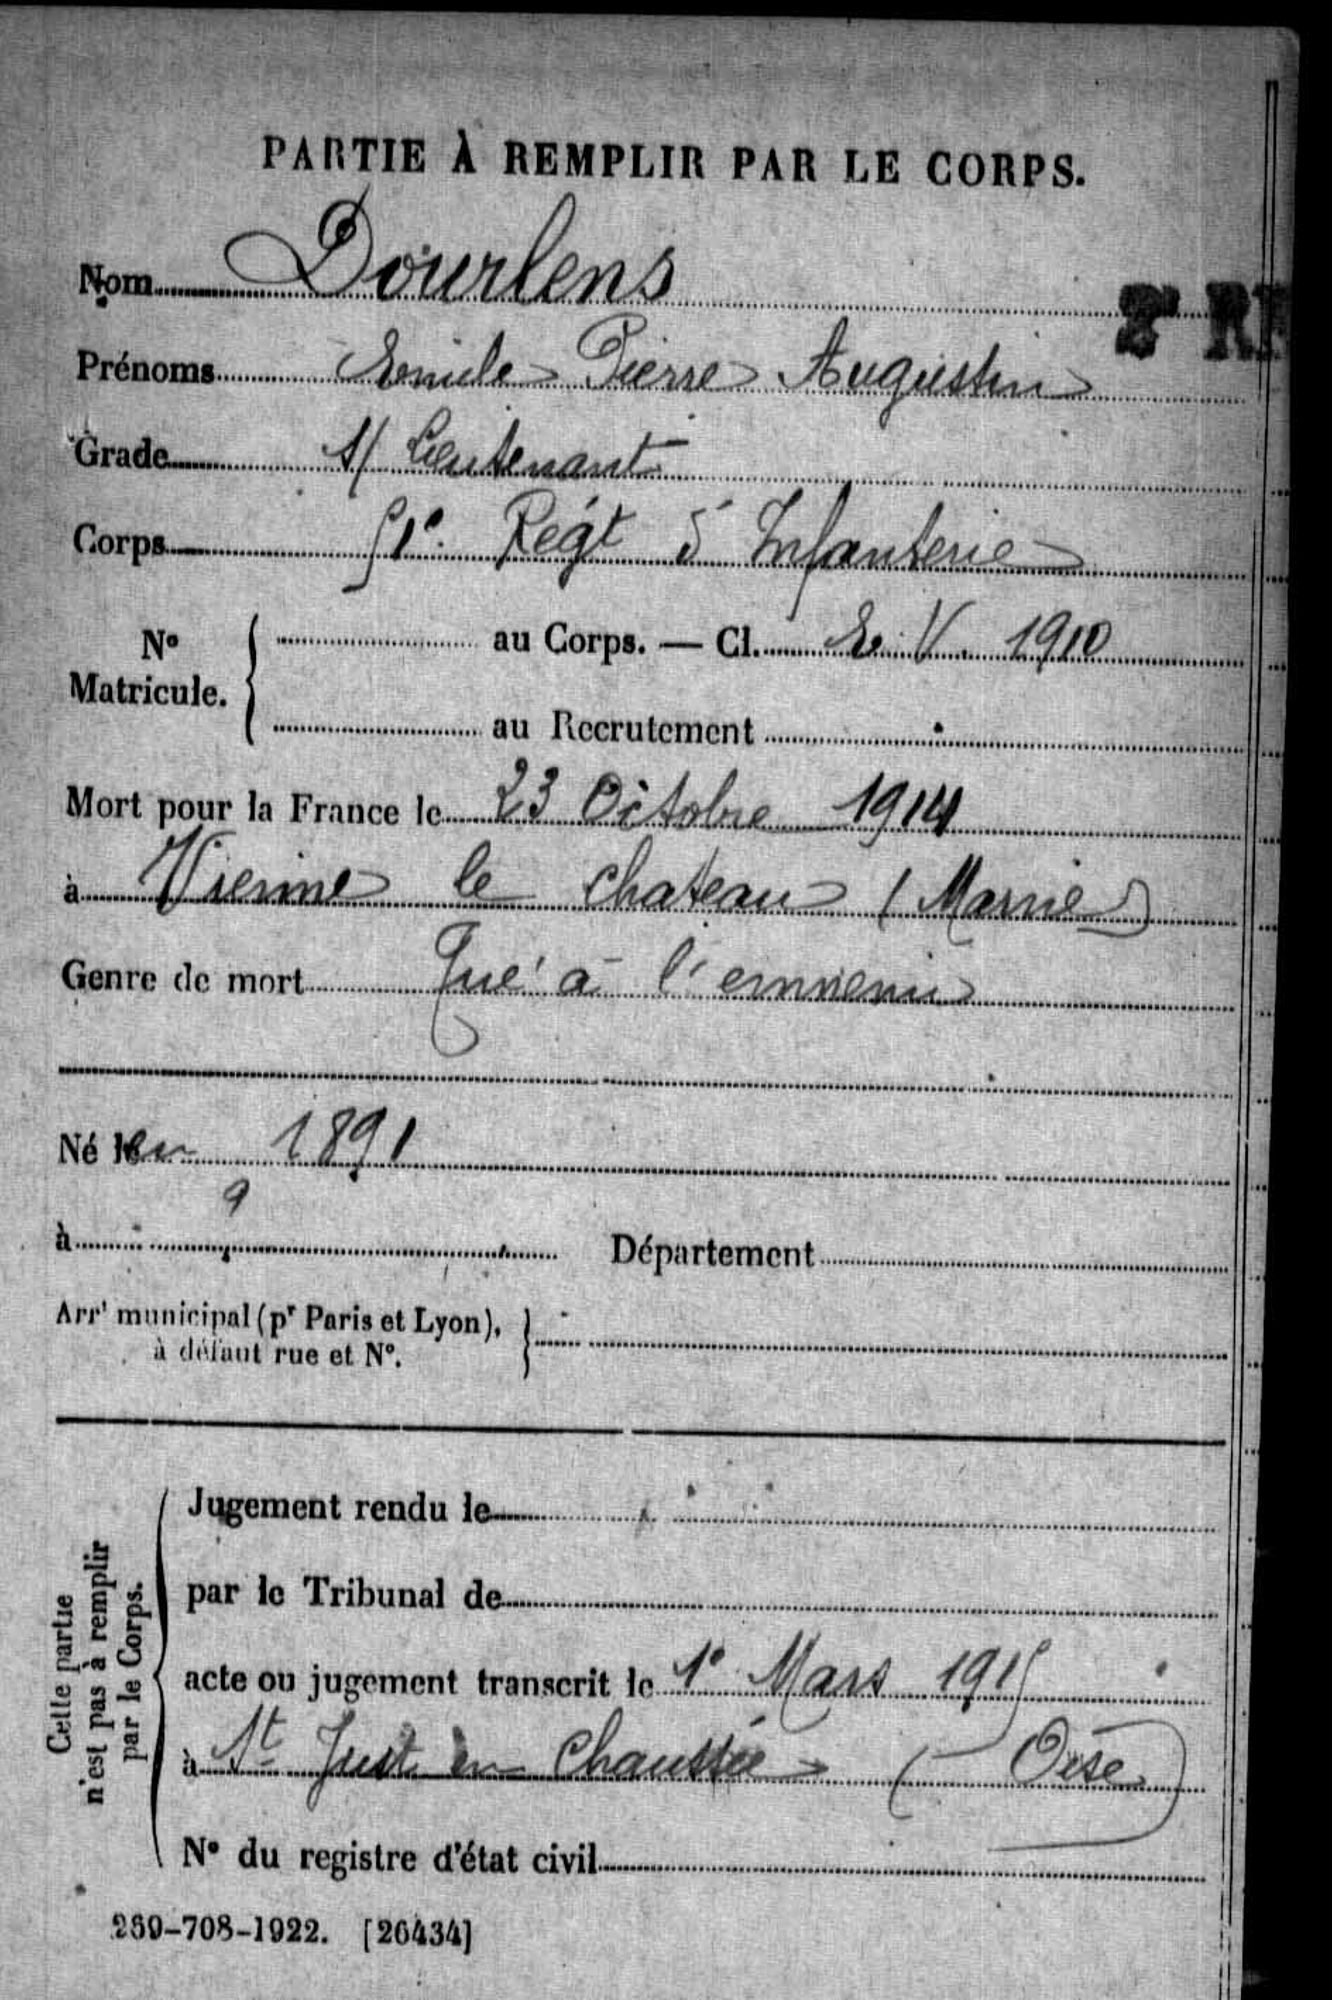 PARTIE À REMPLIR PAR LE CORPS.
Nom Dourlens
2e R
Prénoms Emile Pierre Augustin
Grade S/ Lieutenant
Corps 51e Régt d'Infanterie
No Matricule. { au Corps. — Cl. E. V. 1910
au Recrutement
Mort pour la France le 23 Octobre 1914
à Vienne le chateau (Marne)
Genre de mort Tué à l'ennemi
Né en 1891
à Département
Arrt municipal (pr Paris et Lyon),
à défaut rue et No. }
Cette partie
n'est pas à remplir
par le Corps.
Jugement rendu le
par le Tribunal de
acte ou jugement transcrit le 1o Mars 1915
à St Just en Chaussée (Oise)
No du registre d'état civil
269-708-1922. [26434]